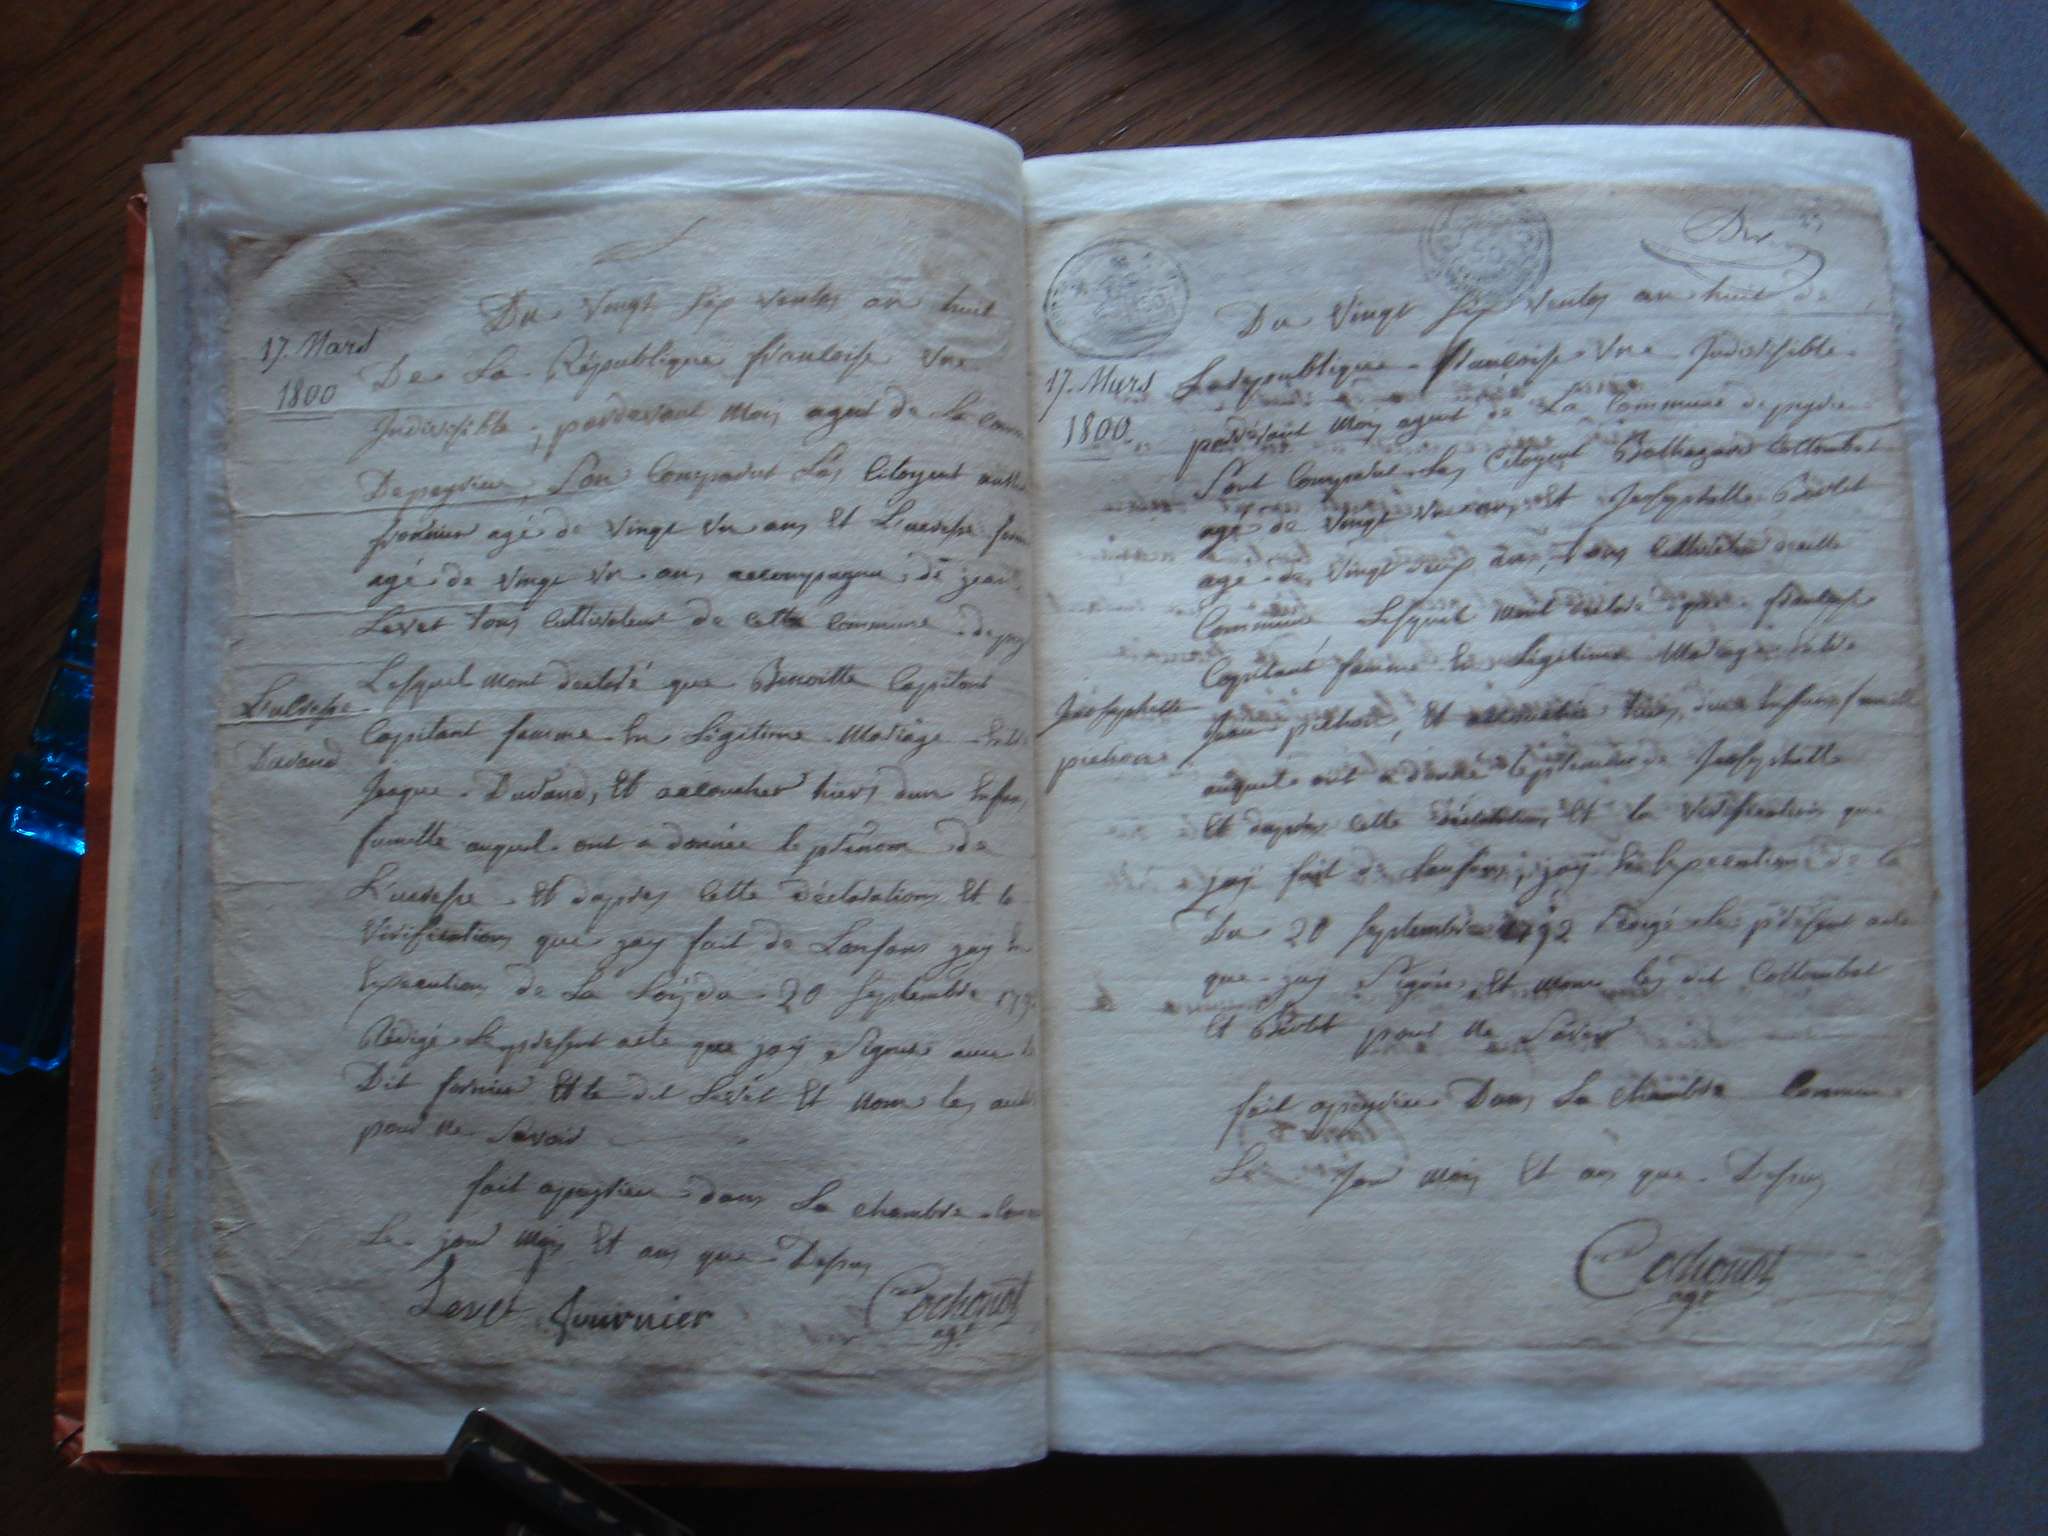 Du Vingt Sep ventos an huit
17. Mars
1800
De La République francoise Une
Indivisible, pardevant Moy agent de La Com
Depeyrieu, Son Comparut Les Citoyent
fournier agé de Vingt Un ans Et L'ucresse
agé de Vingt Un ans accompagné de jean
Levet tous Cultivateur de cette Commune depey
Lesquel mont declaré que Benoitte Capitant
L'ucresse
Durand
Capitant famme En Légitime Mariage
Jaque Durand, Et accoucher hiers dun Enfan
fumelle auquel ont a donnée le prénom de
L'ucresse Et dapres Cette déclarations Et la
Vérifications que jay fait de Lanfans jay En
Execution de La Loy du 20 Septembre 179
Rédigé Le présent acte que jay Signé avec le
Dit fornier Et le dit Levét Et Nom les aut
pour Ne Savoir
fait apeyrieu dans La chambre Com
Le jour Mois Et ans que Dessus
Levet fournier Cochonat
agt
Du Vingt Sep ventos an huit de
17. Mars
1800.
La République francoise Une Indivisible
pardevant Moy agent de La Commune depeyrieu
Sont Comparut Les Citoyent Balthazard Collombet
agé de Vingt Un ans Et Josephette Berlet
agé de Vingt deux ans, Tous Cultivateur de cette
Commune Lesquel Mont declaré que francoise
Capitant famme En Légitime Mariage
Josephette
pichon
Jean pichon, Et accouchée hiers, dun Enfans fumelle
auquel ont a donné le prénom de Josephette
Et dapres Cette déclarations Et la Vérification que
jay fait de Lanfans, jay En Lexecution de la
Du 20 Septembre 1792 Rédigé le présent acte
que jay Signé Et Nom les dit Collombet
Et Berlet pour Ne Savoir
fait apeyrieu Dans La chambre Commune
Le jour Mois Et ans que Dessus
Cochonat
agt